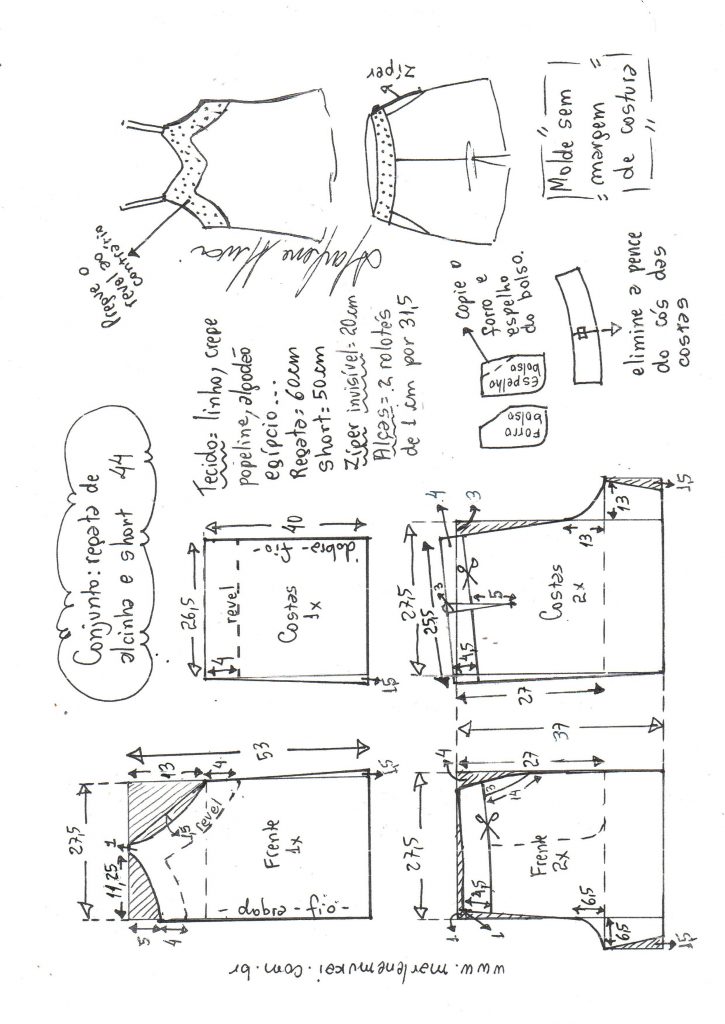 Conjunto: regata de
alcinha e short 44
Tecido: linho, crepe
popeline, algodão
egípcio...
Regata: 60cm
short: 50cm
Zíper invisível = 20cm
Alças = 2 rolotês
de 1 cm por 31,5
Pregue o
revel ao
contrário
Marlene Mukai
zíper
"Molde sem
margem"
de costura"
copie o
forro e
espelho
do bolso.
Forro
bolso
Espelho
bolso
elimine a pence
do cós das
costas
27,5
11,25
1
5
4
13
4
1,5
revel
53
Frente
1x
dobra - fio -
1,5
26,5
4
revel
40
Costas
1x
dobra - fio -
1,5
27,5
4
1
1
4,5
3
14
27
37
Frente
2x
6,5
6,5
1,5
27,5
25,5
3
4
3
4,5
5
27
Costas
2x
13
13
1,5
www.marlenemukai.com.br